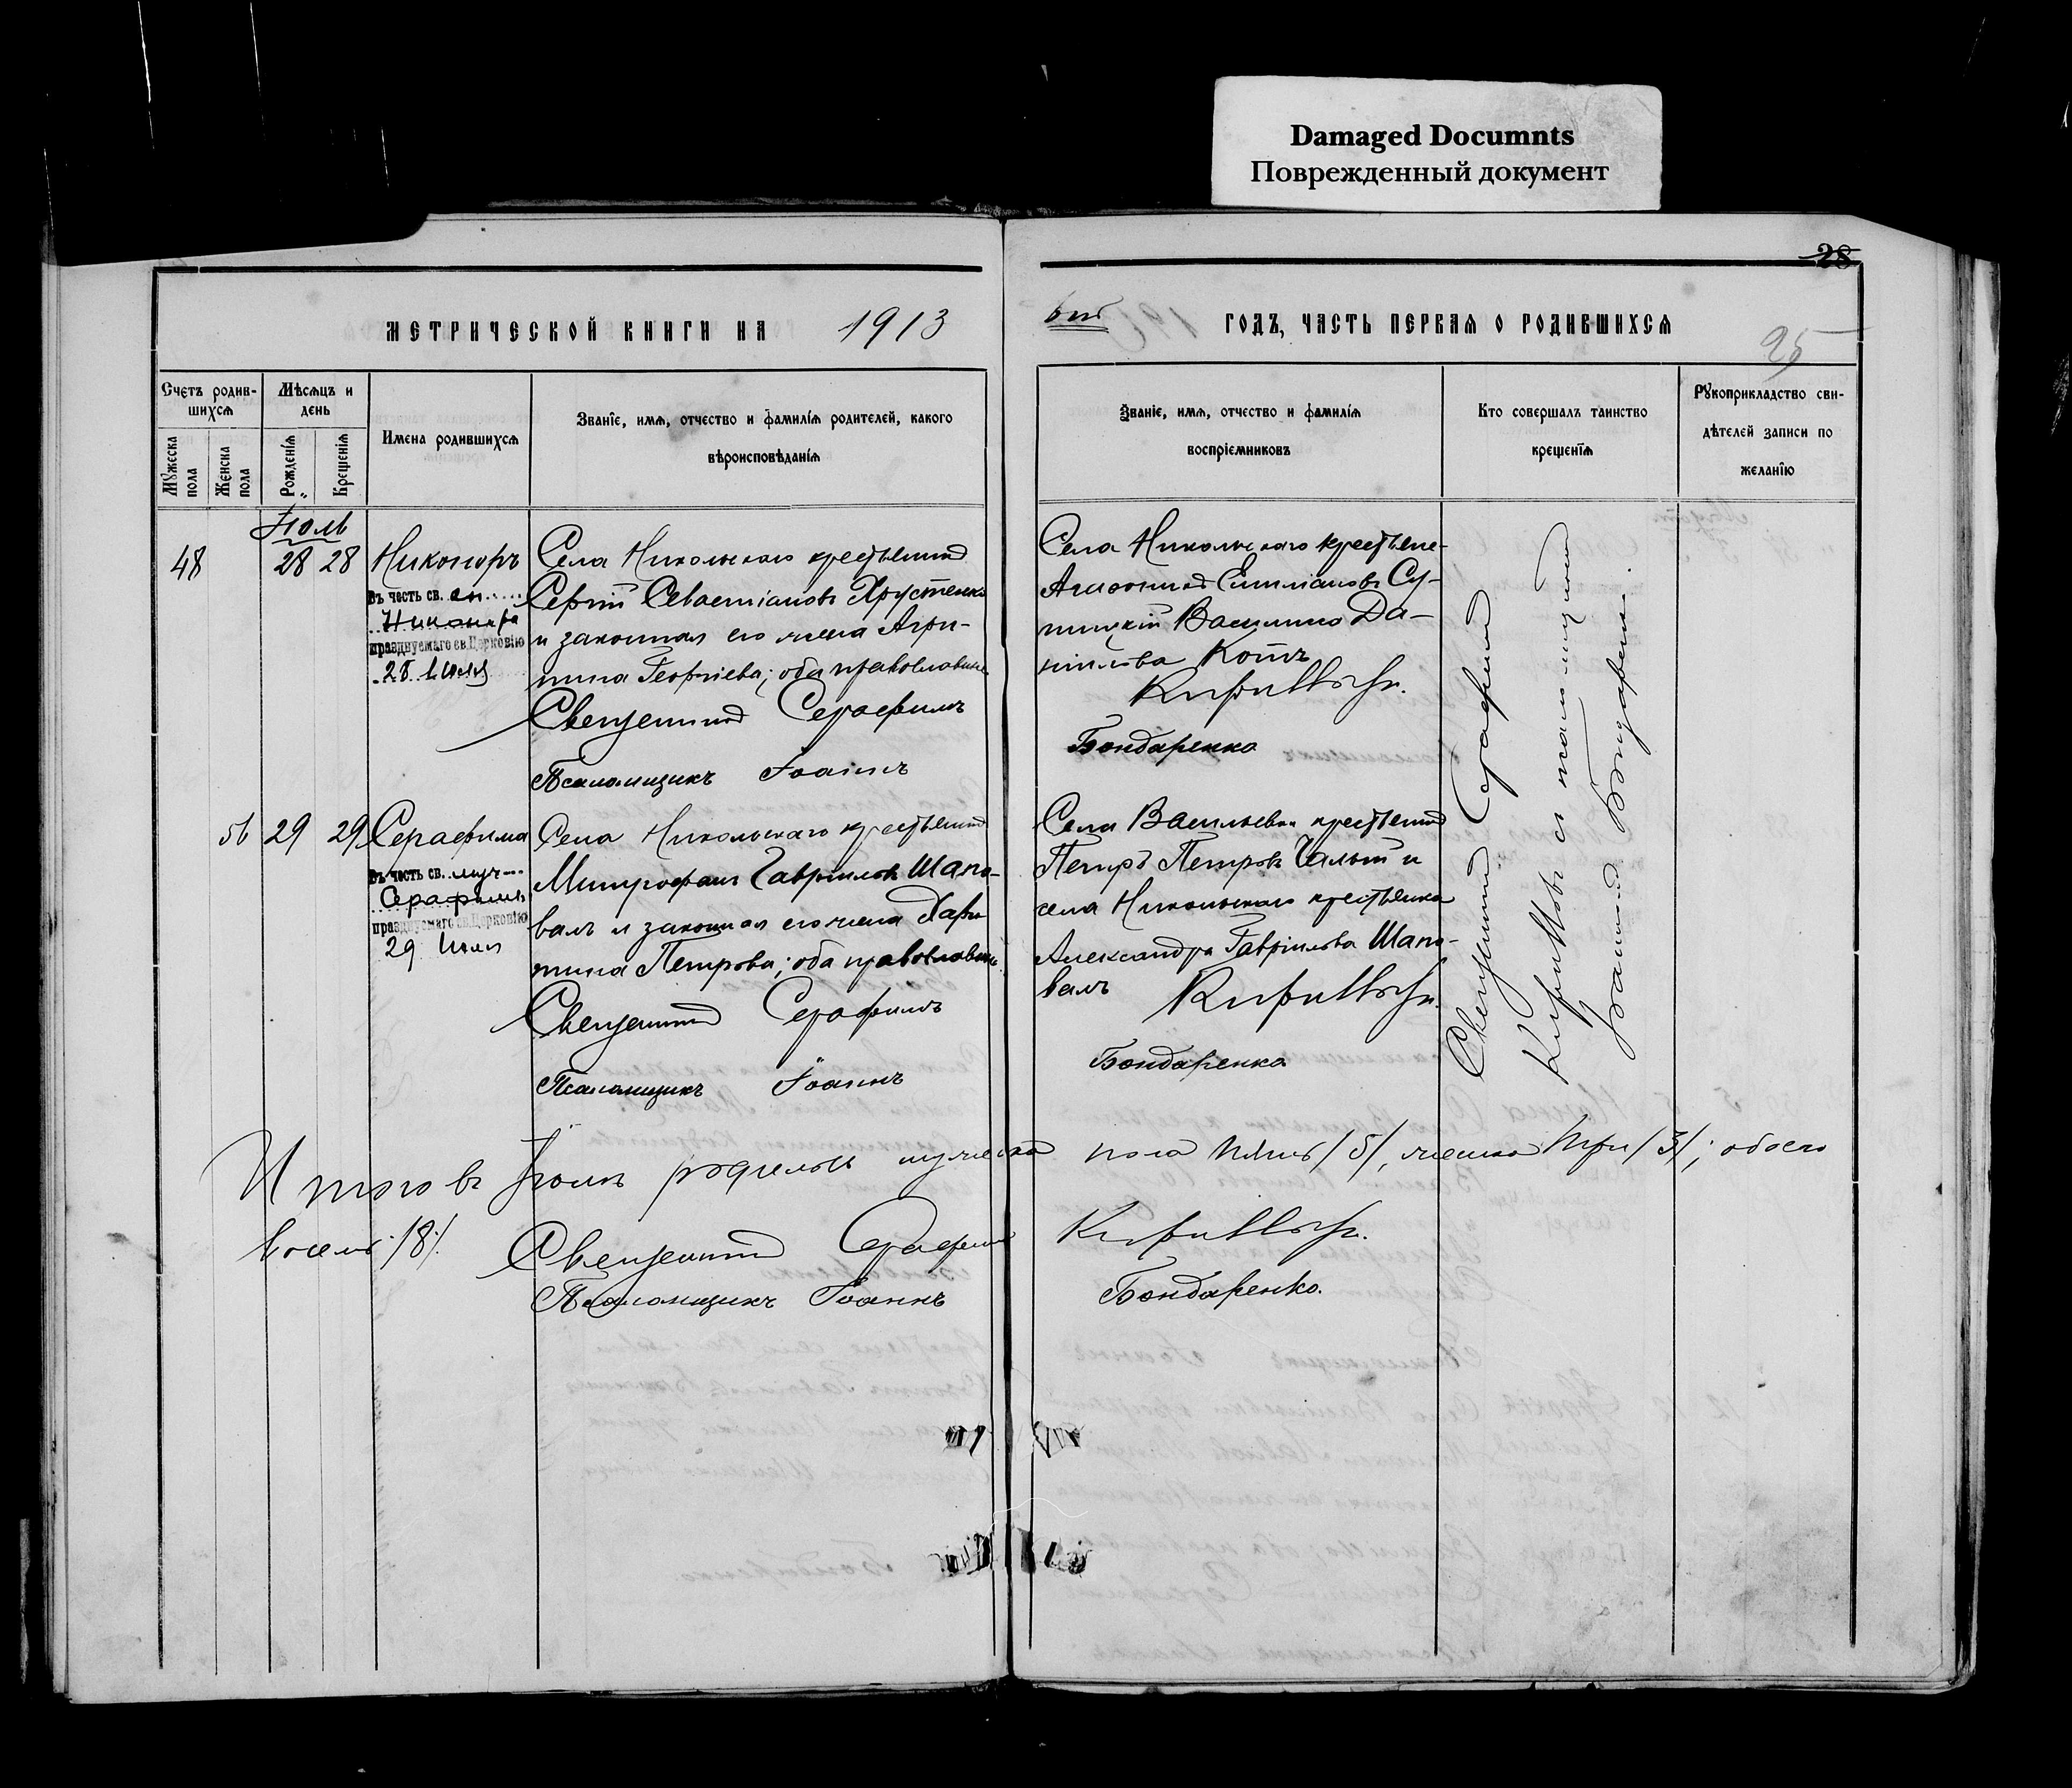 Damaged Documnts
Поврежденный документ
28
МЕТРИЧЕСКОЙ КНИГИ НА 1913
ГОДЪ, ЧАСТЬ ПЕРВАЯ О РОДИВШИХСЯ
25
Счетъ родив-
шихся
Мужеска
пола
Женска
пола
Мѣсяцъ и
день
Рожденія
Крещенія
Имена родившихся
Званіе, имя, отчество и фамилія родителей, какого
вѣроисповѣданія
Званіе, имя, отчество и фамилія
воспріемниковъ
Кто совершалъ таинство
крещенія
Рукоприкладство сви-
дѣтелей записи по
желанію
Іюль
48 28 28 Никоноръ
Въ честь св.
Никанора
празднуемаго св. Церковію
28 Июля
Села Никольскаго крестьянинъ
Сергій Севастіановъ Хрустенко
и законная его жена Агри-
пина Георгіева; оба православные
Священникъ Серафимъ
Псаломщикъ Іоаннъ
Села Никольскаго крестьяне-
Емиліановъ Су-
Василина Да-
ніилова Котъ
Бондаренко
56 29 29 Серафима
Въ честь св. муч
Серафимы
празднуемаго св. Церковію
29 Июля
Села Никольскаго крестьянинъ
Митрофанъ Гавріиловъ Шапо-
валъ и законная его жена Хари-
тина Петрова; оба православные
Священникъ Серафимъ
Псаломщикъ Іоаннъ
Села Васильевки крестьянинъ
Петръ Петровъ Чалый и
села Никольскаго крестьянка
Александра Гавріилова Шапо-
валъ
Бондаренко
Священникъ Серафимъ
съ псаломщикомъ
Іоанномъ Бондаренко.
Итого въ Іюлѣ родилось мужеска пола пять /5/, женска три /3/; обоего
восемь /8/.
Священникъ Серафимъ
Псаломщикъ Іоаннъ Бондаренко.